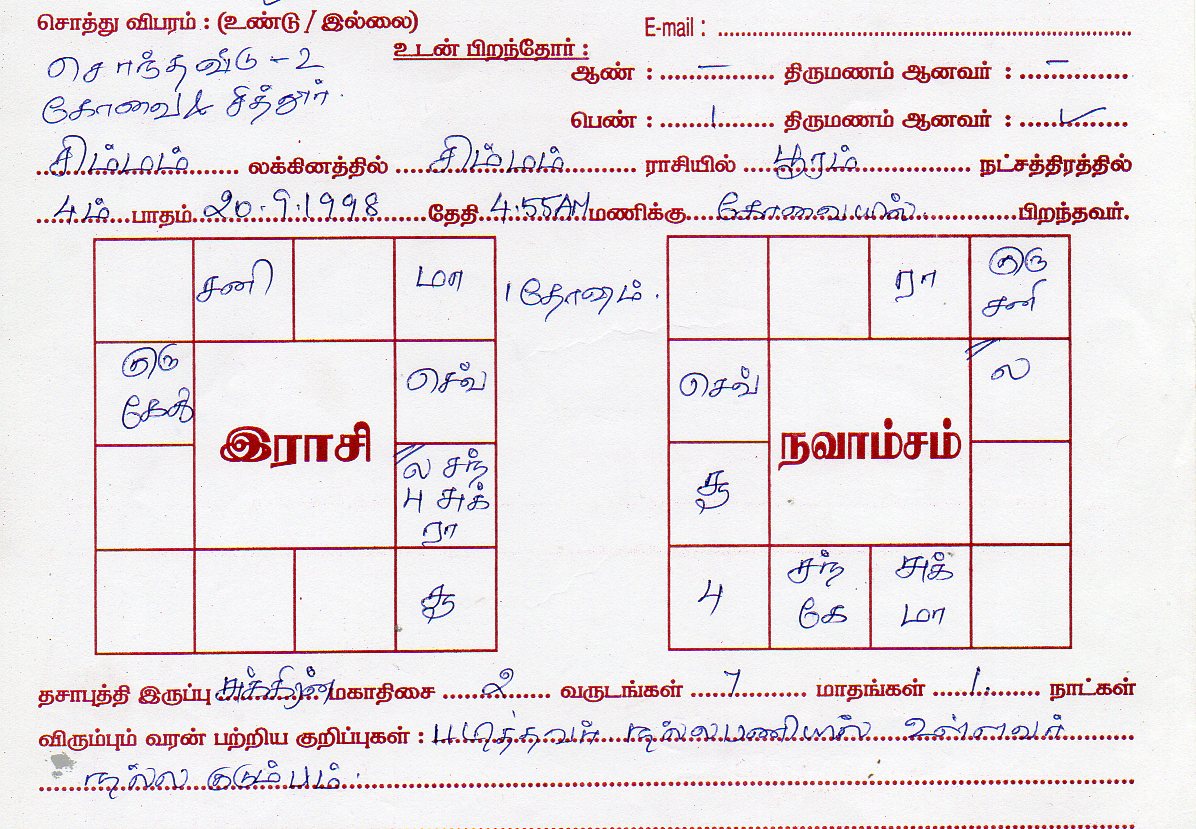 சொத்து விபரம் : (உண்டு / இல்லை)
E-mail : 
சொந்தவீடு - 2
கோவை & சித்தூர்.
உடன் பிறந்தோர் :
ஆண் : — திருமணம் ஆனவர் : —
பெண் : 1 திருமணம் ஆனவர் : ✓
சிம்மம் லக்கினத்தில் சிம்மம் ராசியில் பூரம் நட்சத்திரத்தில்
4ம் பாதம் 20.9.1998 தேதி 4:55AM மணிக்கு கோவையில் பிறந்தவர்.
சனி
மா
1 தோஷம்.
குரு
கேது
செவ்
ல சந்
பு சுக்
ரா
சூ
இராசி
ரா
குரு
சனி
செவ்
ல
சூ
பு
சந்
கே
சுக்
மா
நவாம்சம்
தசாபுத்தி இருப்பு சுக்கிரன் மகாதிசை 2 வருடங்கள் 7 மாதங்கள் 1. நாட்கள்
விரும்பும் வரன் பற்றிய குறிப்புகள் : படித்தவர் நல்லபணியில் உள்ளவர்
நல்ல குடும்பம்.